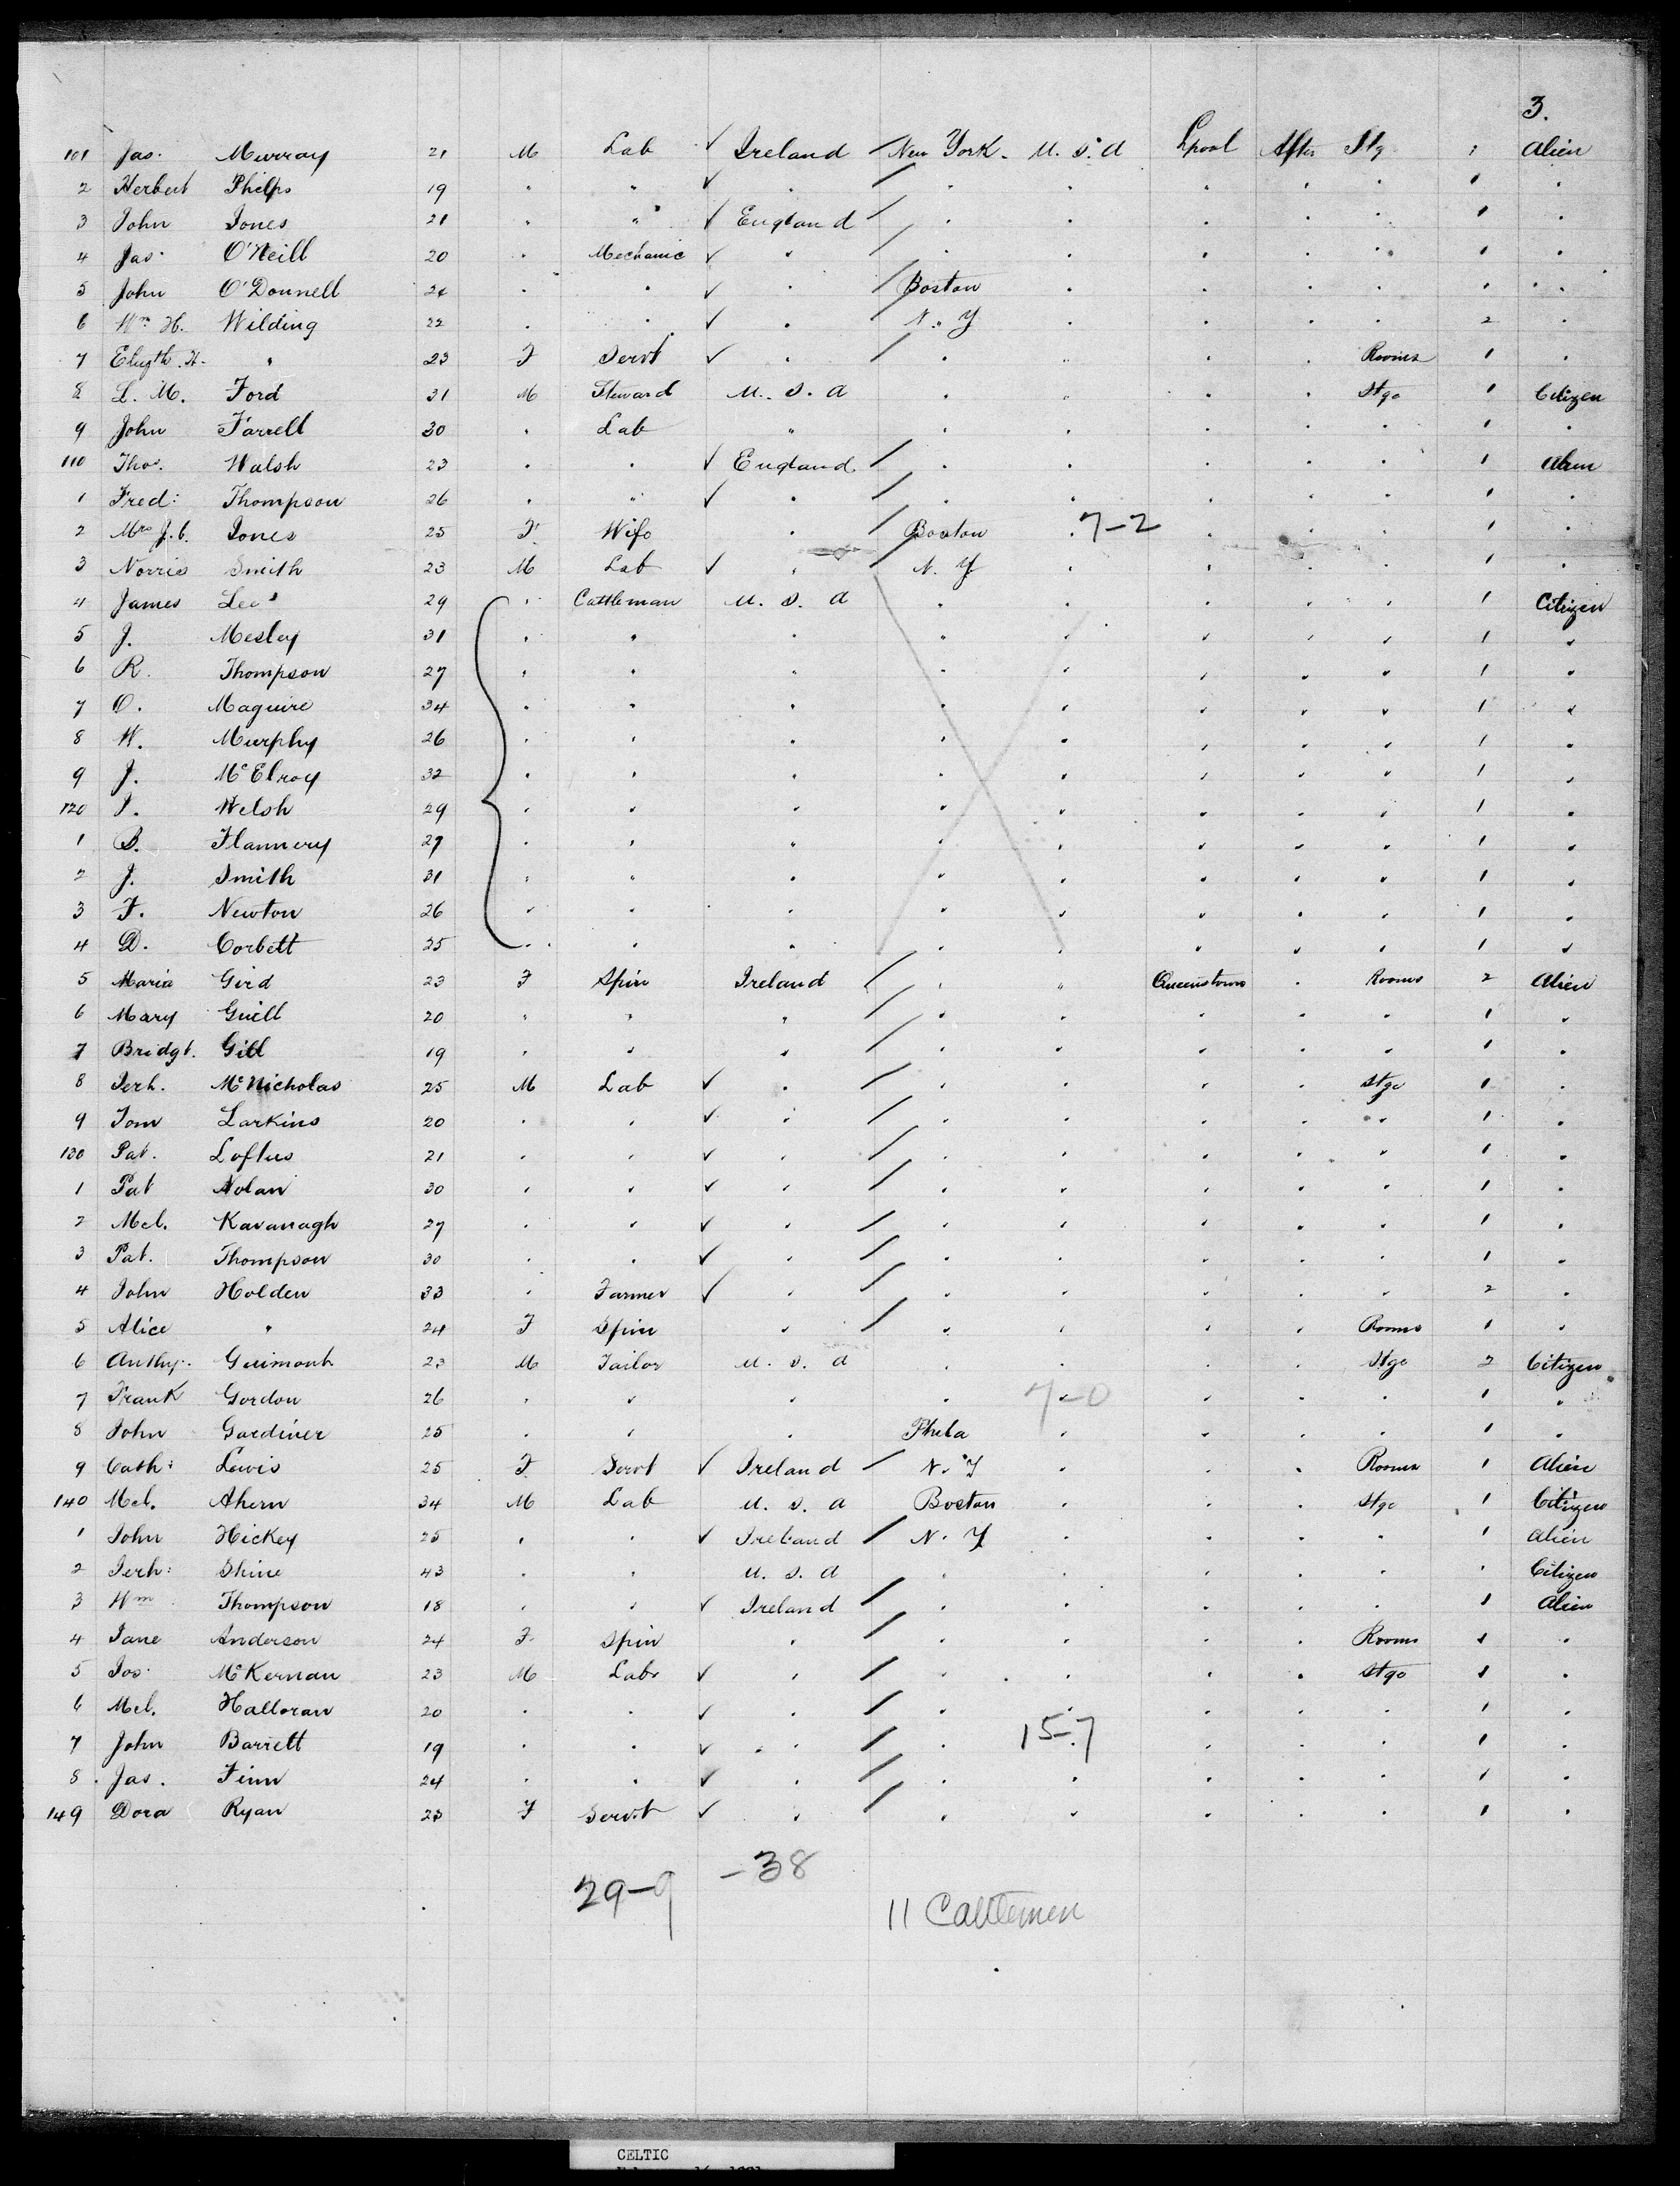 3.
101 Jas. Murray 21 M Lab ✓ Ireland / New York. U.S.A Lpool Aftr Stg 1 Alien
2 Herbert Phelps 19 " " ✓ " / " " " " " 1 "
3 John Jones 21 " " ✓ England / " " " " " 1 "
4 Jas. O'Neill 20 " Mechanic ✓ " / " " " " " 1 "
5 John O'Donnell 24 " " ✓ " / Boston " " " " 1 "
6 Wm H. Wilding 22 " " ✓ " / N.Y " " " " 2 "
7 Elizth. H. " 23 F Servt ✓ " / " " " " Rooms 1 "
8 L. M. Ford 31 M Steward U.S.A " " " " Stge 1 Citizen
9 John Farrell 30 " Lab " " " " " " 1 "
110 Thos. Walsh 23 " " ✓ England / " " " " " 1 Alien
1 Fred: Thompson 26 " " ✓ " / " " " " " 1 "
2 Mrs J.C. Jones 25 F. Wife " / Boston " 7-2 " " " 1 "
3 Norris Smith 23 M Lab ✓ " N.Y " " " " 1 "
4 James Lee 29 " Cattleman U.S.A " " " " " 1 Citizen
5 J. Mesley 31 " " " " " " " " 1 "
6 R. Thompson 27 " " " " " " " " 1 "
7 O. Maguire 34 " " " " " " " " 1 "
8 W. Murphy 26 " " " " " " " " 1 "
9 J. McElroy 32 " " " " " " " " 1 "
120 Welsh 29 " " " " " " " " 1 "
1 B. Flannery 27 " " " " " " " " 1 "
2 J. Smith 31 " " " " " " " " 1 "
3 F. Newton 26 " " " " " " " " 1 "
4 D. Corbett 25 " " " " " " " " 1 "
5 Maria Gird 23 F Spin Ireland / " " Queenstown " Rooms 2 Alien
6 Mary Guell 20 " " " / " " " " " 1 "
7 Bridgt. Gill 19 " " " / " " " " " 1 "
8 Jerh. McNicholas 25 M Lab ✓ " / " " " " Stge 1 "
9 Tom Larkins 20 " " ✓ " / " " " " " 1 "
130 Pat. Loftus 21 " " ✓ " / " " " " " 1 "
1 Pat Nolan 30 " " ✓ " / " " " " " 1 "
2 Mcl. Kavanagh 27 " " ✓ " / " " " " " 1 "
3 Pat. Thompson 30 " " ✓ " / " " " " " 1 "
4 John Holden 33 " Farmer ✓ " / " " " " " 2 "
5 Alice " 24 F Spin " / " " " " Rooms 1 "
6 Anthy. 23 M Tailor U.S.A " " " " Stge 2 Citizen
7 Frank Gordon 26 " " " " 7-0 " " " 1 "
8 John Gardiner 25 " " " Phela " " " " 1 "
9 Cath: Lewis 25 F. Servt ✓ Ireland / N.Y " " " Rooms 1 Alien
140 Mcl. Ahern 34 M Lab U.S.A Boston " " " Stge 1 Citizen
1 John Hickey 25 " " ✓ Ireland / N.Y " " " " 1 Alien
2 Jerh: Shine 43 " " U.S.A " " " " " 1 Citizen
3 Wm Thompson 18 " " ✓ Ireland / " " " " " 1 Alien
4 Jane Anderson 24 F. Spin " / " " " " Rooms 1 "
5 Jos. McKernan 23 M Labr ✓ " / " " " " Stge 1 "
6 Mcl. Halloran 20 " " ✓ " / " " " " " 1 "
7 John Barrett 19 " " ✓ " / " 15-7 " " " 1 "
8 Jas. Finn 24 " " ✓ " / " " " " " 1 "
149 Dora Ryan 23 F Servt ✓ " / " " " " " 1 "
29-9 -38
11 Cattlemen
CELTIC